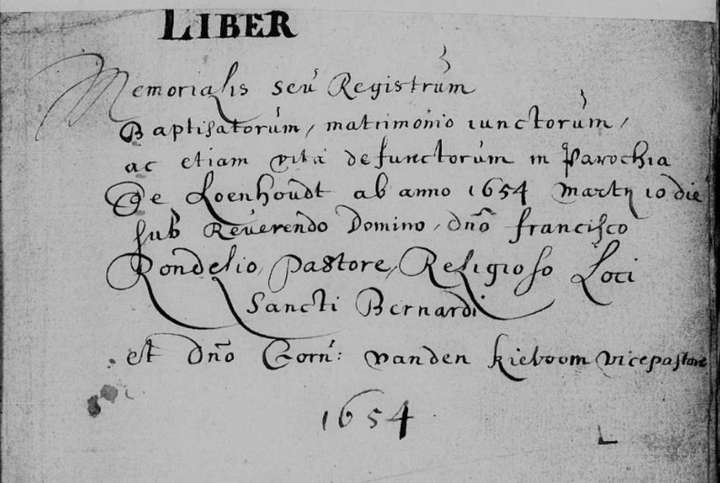 LIBER
Memorialis seú Registrúm
Baptisatorúm, matrimonio iunctorúm,
ac etiam vitá defunctorúm in Parochia
De Loenhoúdt ab anno 1654 martij 10 die
sub Reúerendo Domino, dn̄o francisco
Rondelio, Pastore, Religioso Loci
Sancti Bernardi
et Dn̄o Corn: vanden kieboom vicepastore
1654